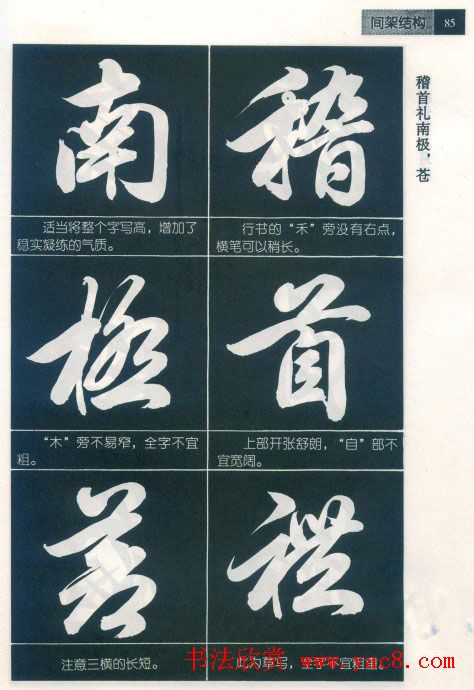 间架结构 85
稽首礼南极，苍
稽
行书的“禾”旁没有右点，
横笔可以稍长。
首
上部开张舒朗，“自”部不
宜宽阔。
禮
此为草写，全字不宜粗重。
南
适当将整个字写高，增加了
稳实凝练的气质。
極
“木”旁不易窄，全字不宜
粗。
蒼
注意三横的长短。
书法欣赏 www.yac8.com